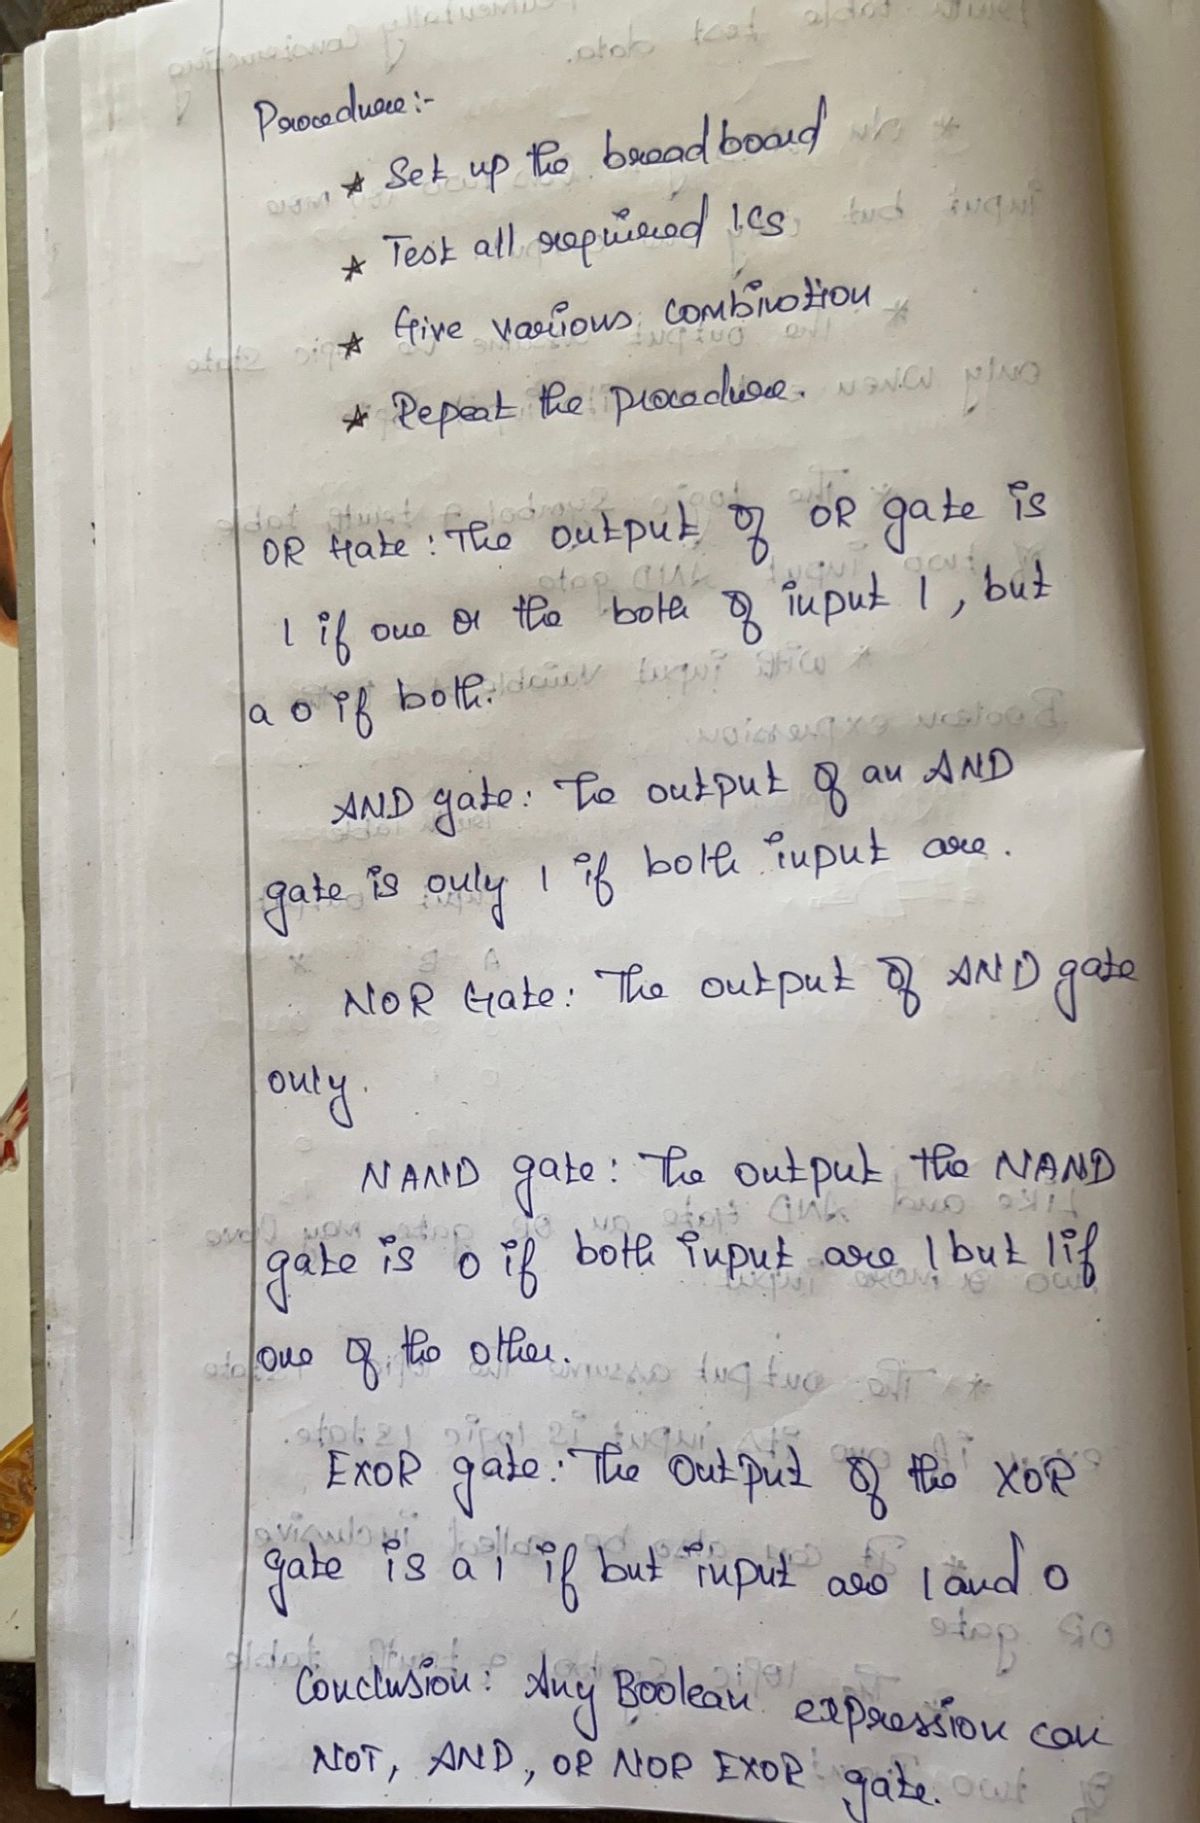 Procedure:-
★ Set up the bread board
★ Test all required ICs
★ Give various combination
★ Repeat the procedure.
OR Gate : The output of OR gate is
1 if one or the both of input 1, but
a 0 if both.
AND gate: The output of an AND
gate is only 1 if both input are.
NOR Gate: The output of AND gate
only.
NAND gate: The output the NAND
gate is 0 if both input are 1 but 1 if
one of the other.
EXOR gate: The output of the XOR
gate is a 1 if but input are 1 and 0
Conclusion: Any Boolean expression can
NOT, AND, OR NOR EXOR gate.